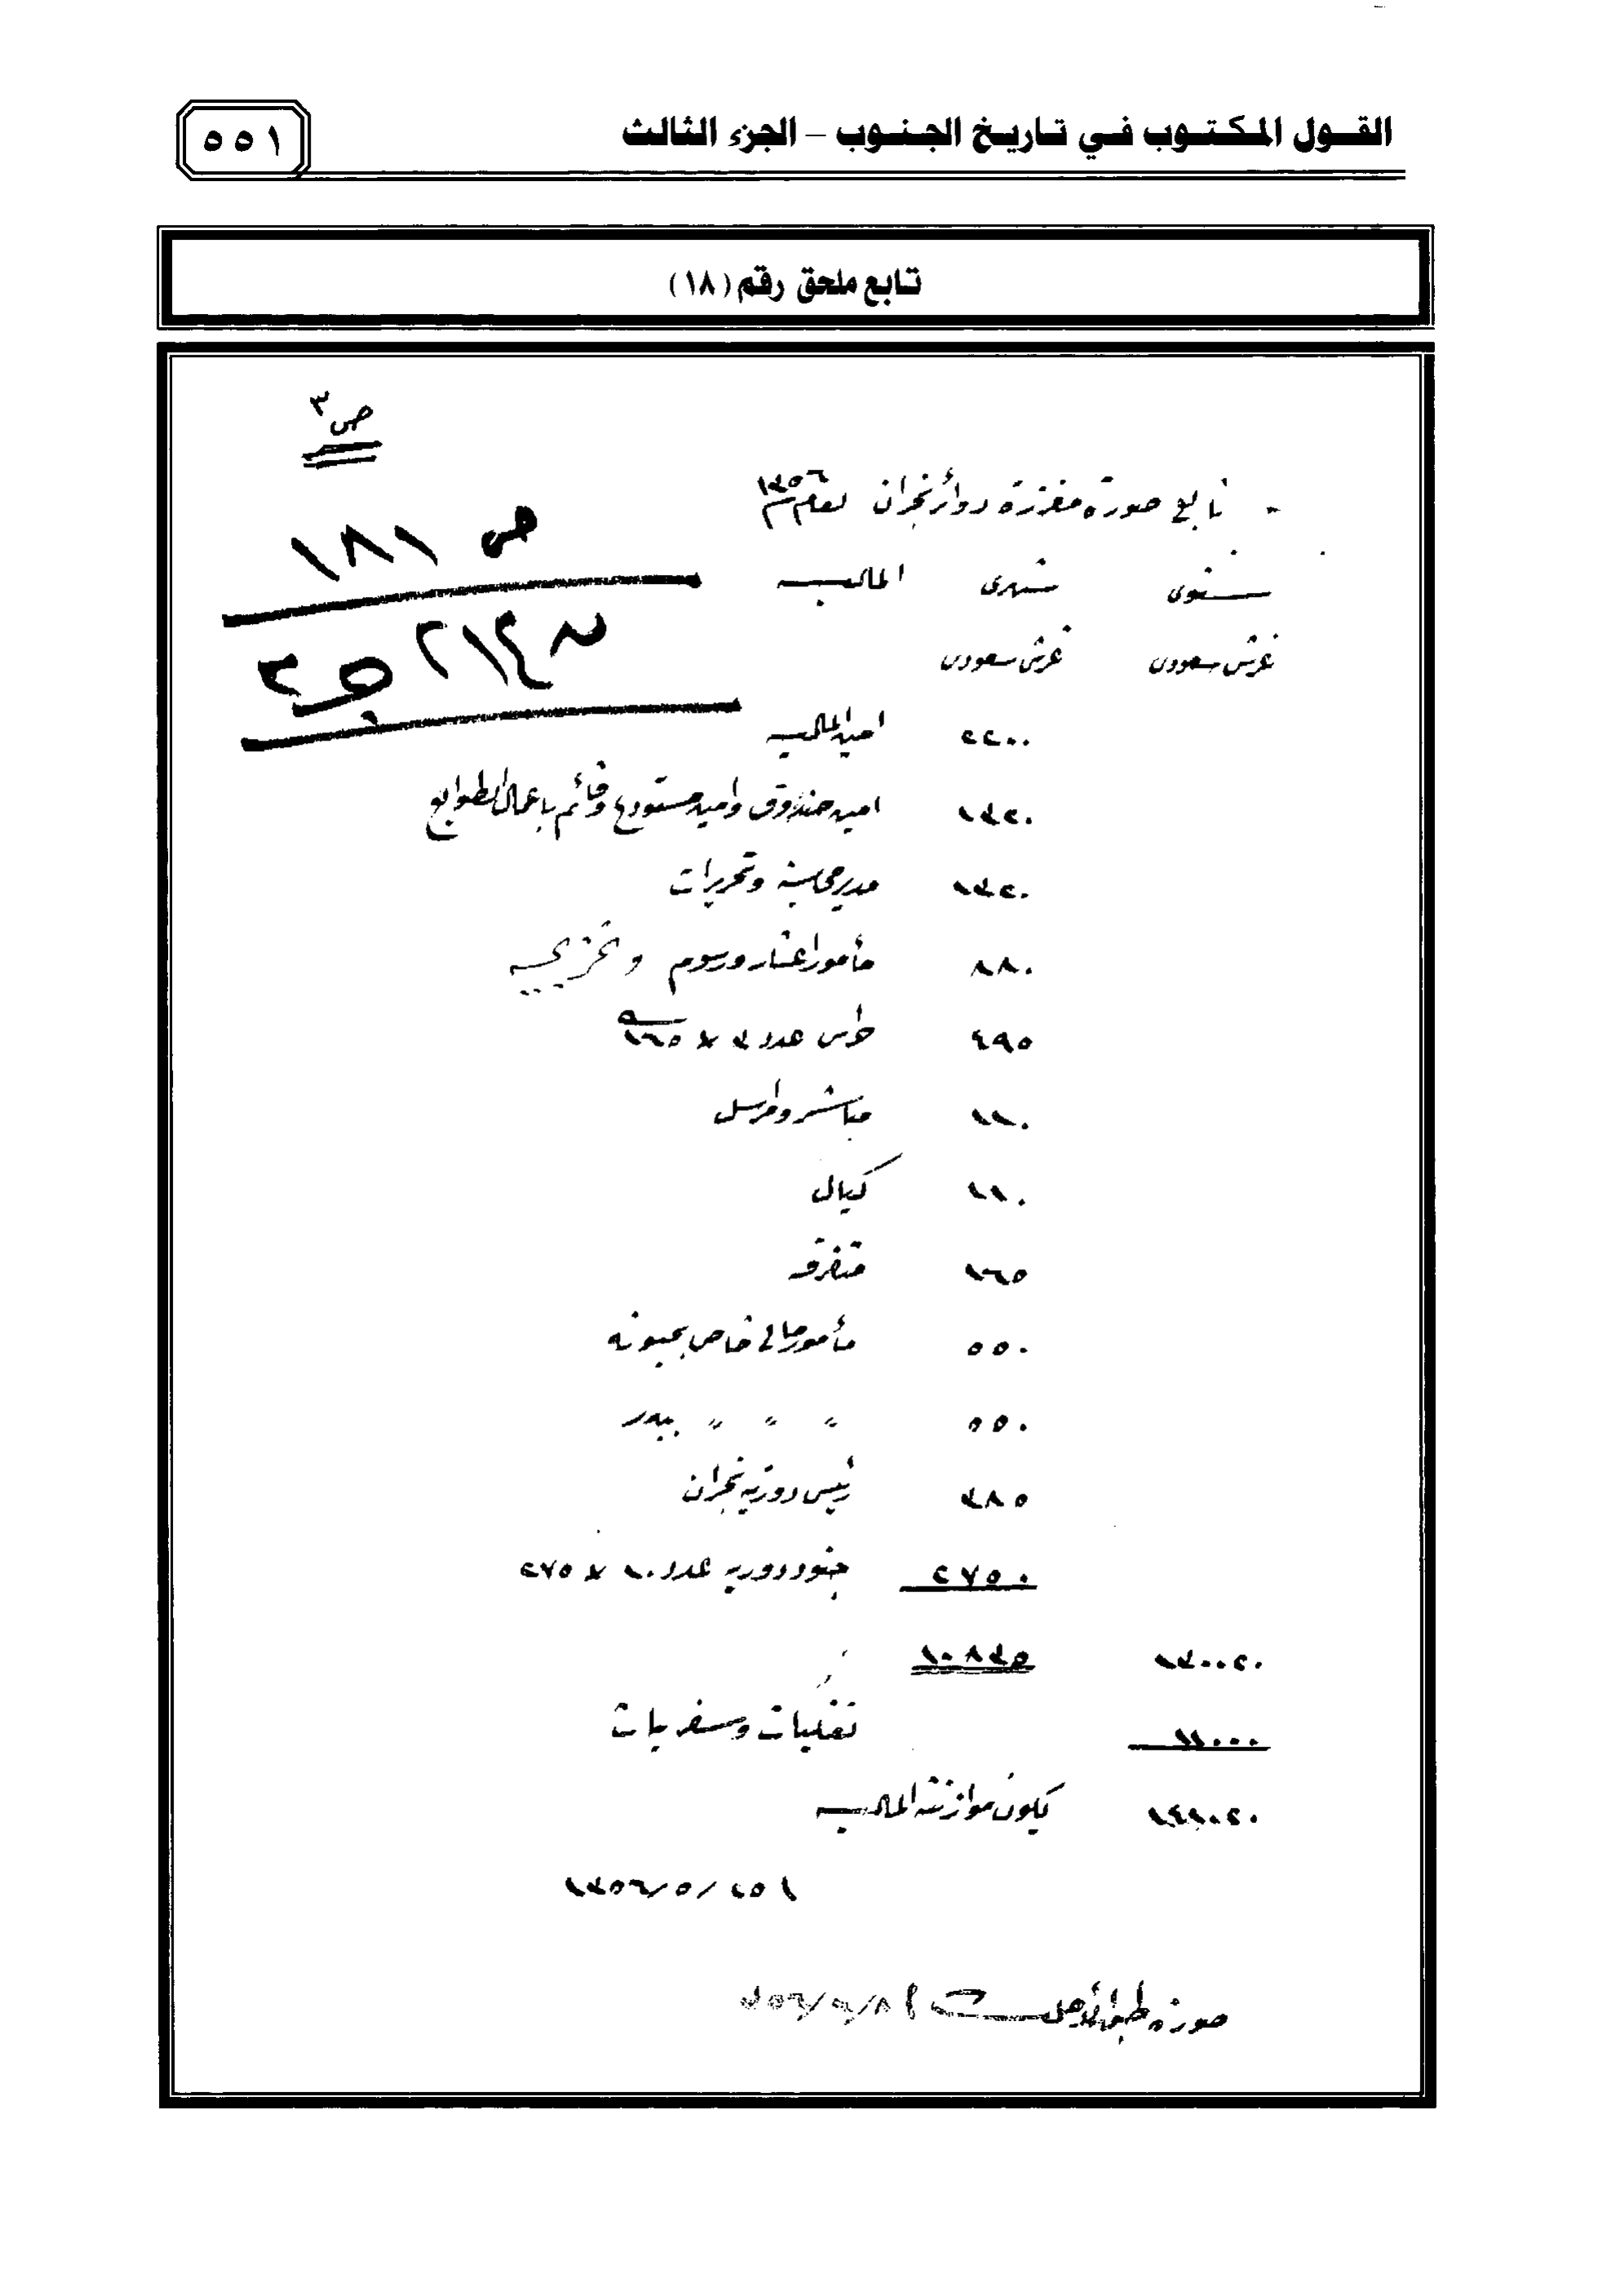 القول المكتوب في تاريخ الجنوب – الجزء الثالث
٥٥١
تابع ملحق رقم (١٨)
ص ٣
- تابع صورة مقررة دوائر نجران لعام ١٣٥٦
ص ١٨١
سنوي شهري الماليه
غرش سعودي غرش سعودي
٢٢٠٠ امين الماليه
١٣٢٠ امين صندوق وامين مستودع وقائم باعمال الطوابع
١٣٢٠ مدير محاسبة وتحريرات
٨٨٠ مأمور اعشار ورسوم و
٤٩٥ حراس عدد ٣ × ١٦٥
١١٠ مباشر ومراسل
١١٠ كيال
١٦٥ متفرقه
٥٥٠ مأمور مالي خاص بحبونه
٥٥٠ " " " ببدر
٣٨٥ رئيس دورية نجران
٢٧٥٠ جنود دوريه عدد ١٠ × ٢٧٥
١٣٠٠٢٠ ١٠٨٣٥
١١٠٠٠ نقليات وسفريات
١٤١٠٢٠ يكون موازنة الماليه
١٣٥٦/٥/٢٥١
صورة طبق الأصل